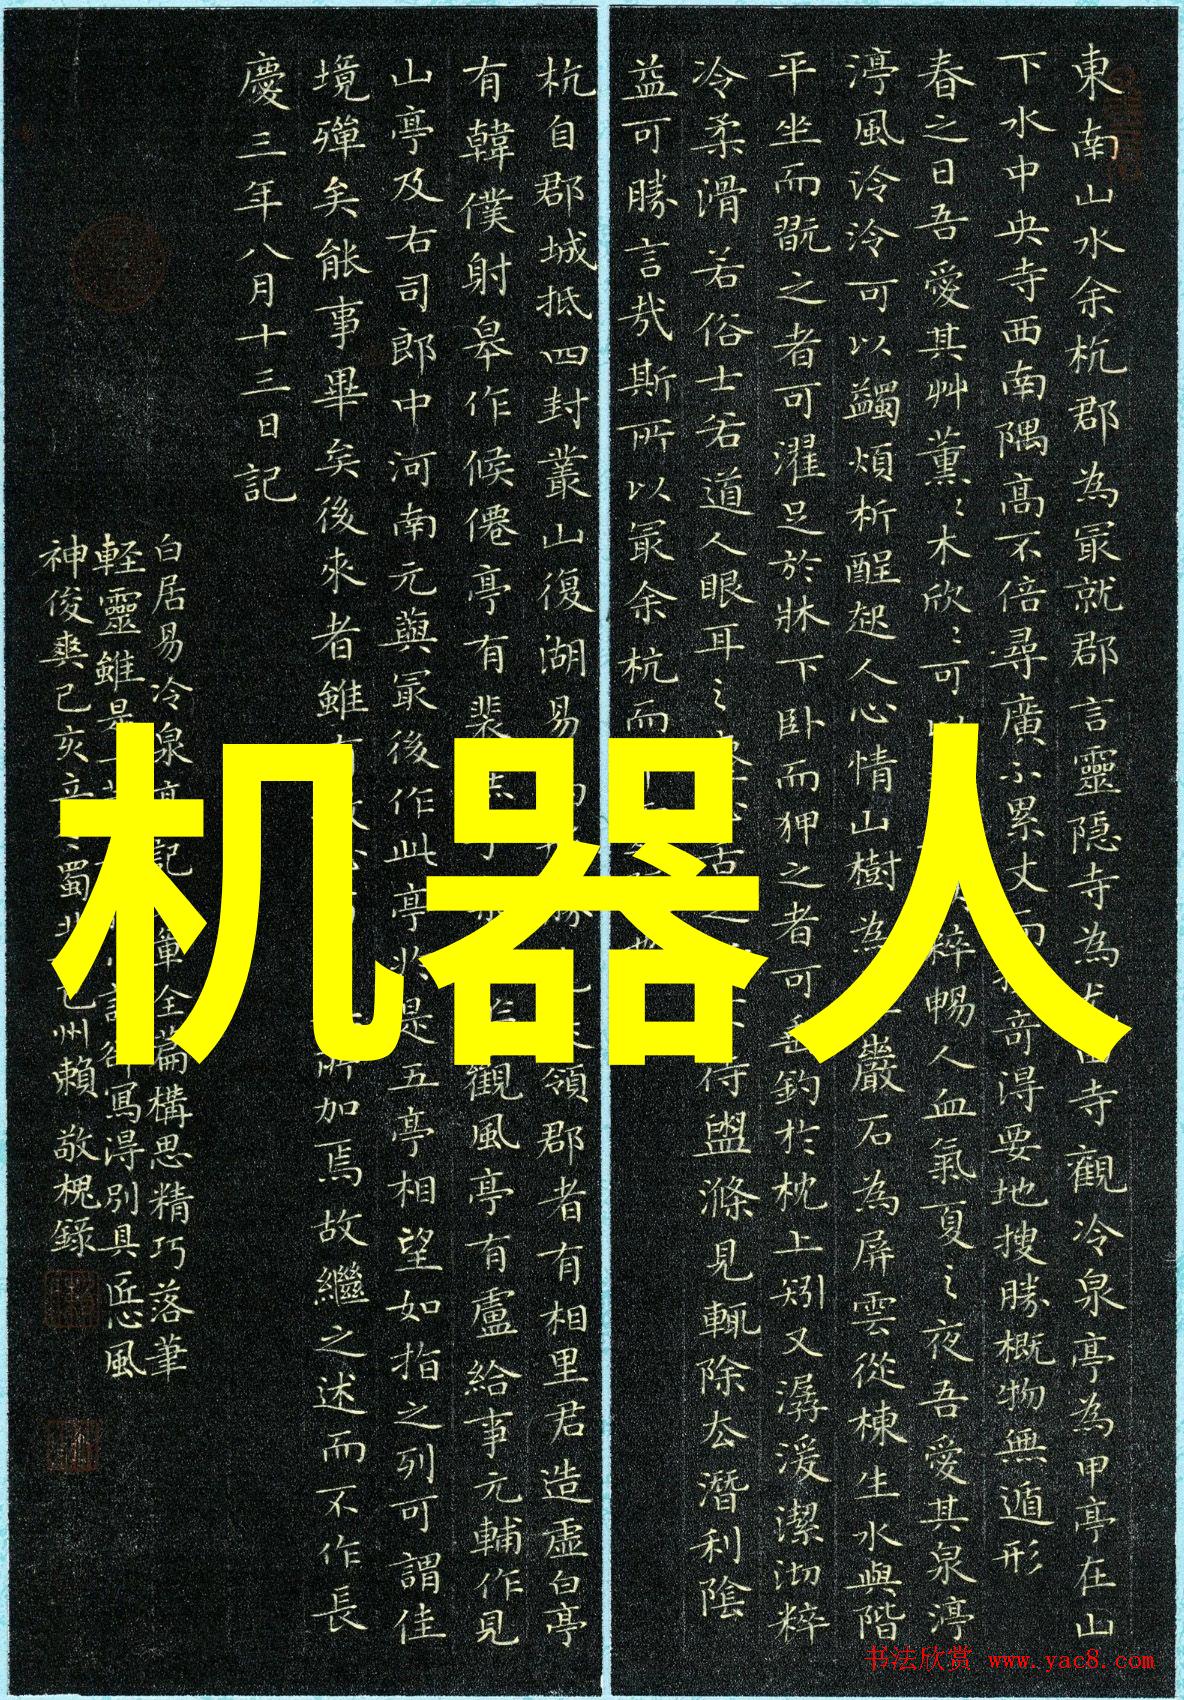 東南山水余杭郡為冣就郡言靈隐寺為尤由寺觀冷泉亭為甲亭在山
下水中央寺西南隅高不倍尋廣不累丈而奇得要地搜勝概物無遁形
春之日吾愛其艸薰〻木欣〻可粹暢人血氣夏之夜吾愛其泉渟
渟風泠泠可以蠲煩析酲起人心情山樹為巖石為屏雲從棟生水與階
平坐而翫之者可濯足於牀下卧而狎之者可垂釣於枕上矧又潺湲潔沏粹
冷柔滑若俗士若道人眼耳之待盥滌見輒除去潛利陰
益可勝言哉斯所以冣余杭而
杭自郡城抵四封叢山復湖易領郡者有相里君造虛白亭
有韓僕射皋作候僊亭有裴觀風亭有盧給事元輔作見
山亭及右司郎中河南元藇冣後作此亭於是五亭相望如指之列可謂佳
境殫矣能事畢矣後來者雖所加焉故繼之述而不作長
慶三年八月十三日記
白居易冷泉亭記全篇構思精巧落筆
軽靈雖是寫得別具匠心風
神俊爽己亥蜀北州賴敬槐錄
机器人
书法欣赏 www.yac8.com